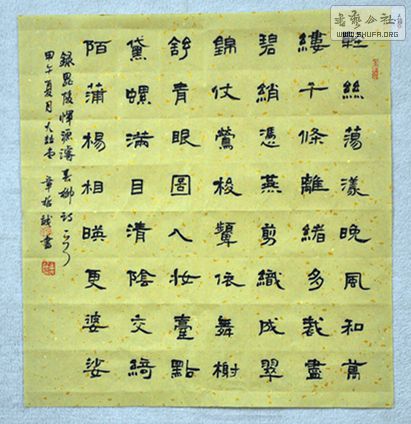 輕絲蕩漾晚風和萬
縷千條離緒多裁盡
碧綃憑燕剪織成翠
錦仗鶯梭顰依舞榭
舒青眼圖入妝臺點
黛螺滿目清陰交綺
陌蒲楊相暎更婆娑
錄毘陵惲源濬春柳詩一首
甲午夏月 章 書
书艺公社
WWW.SHUFA.ORG